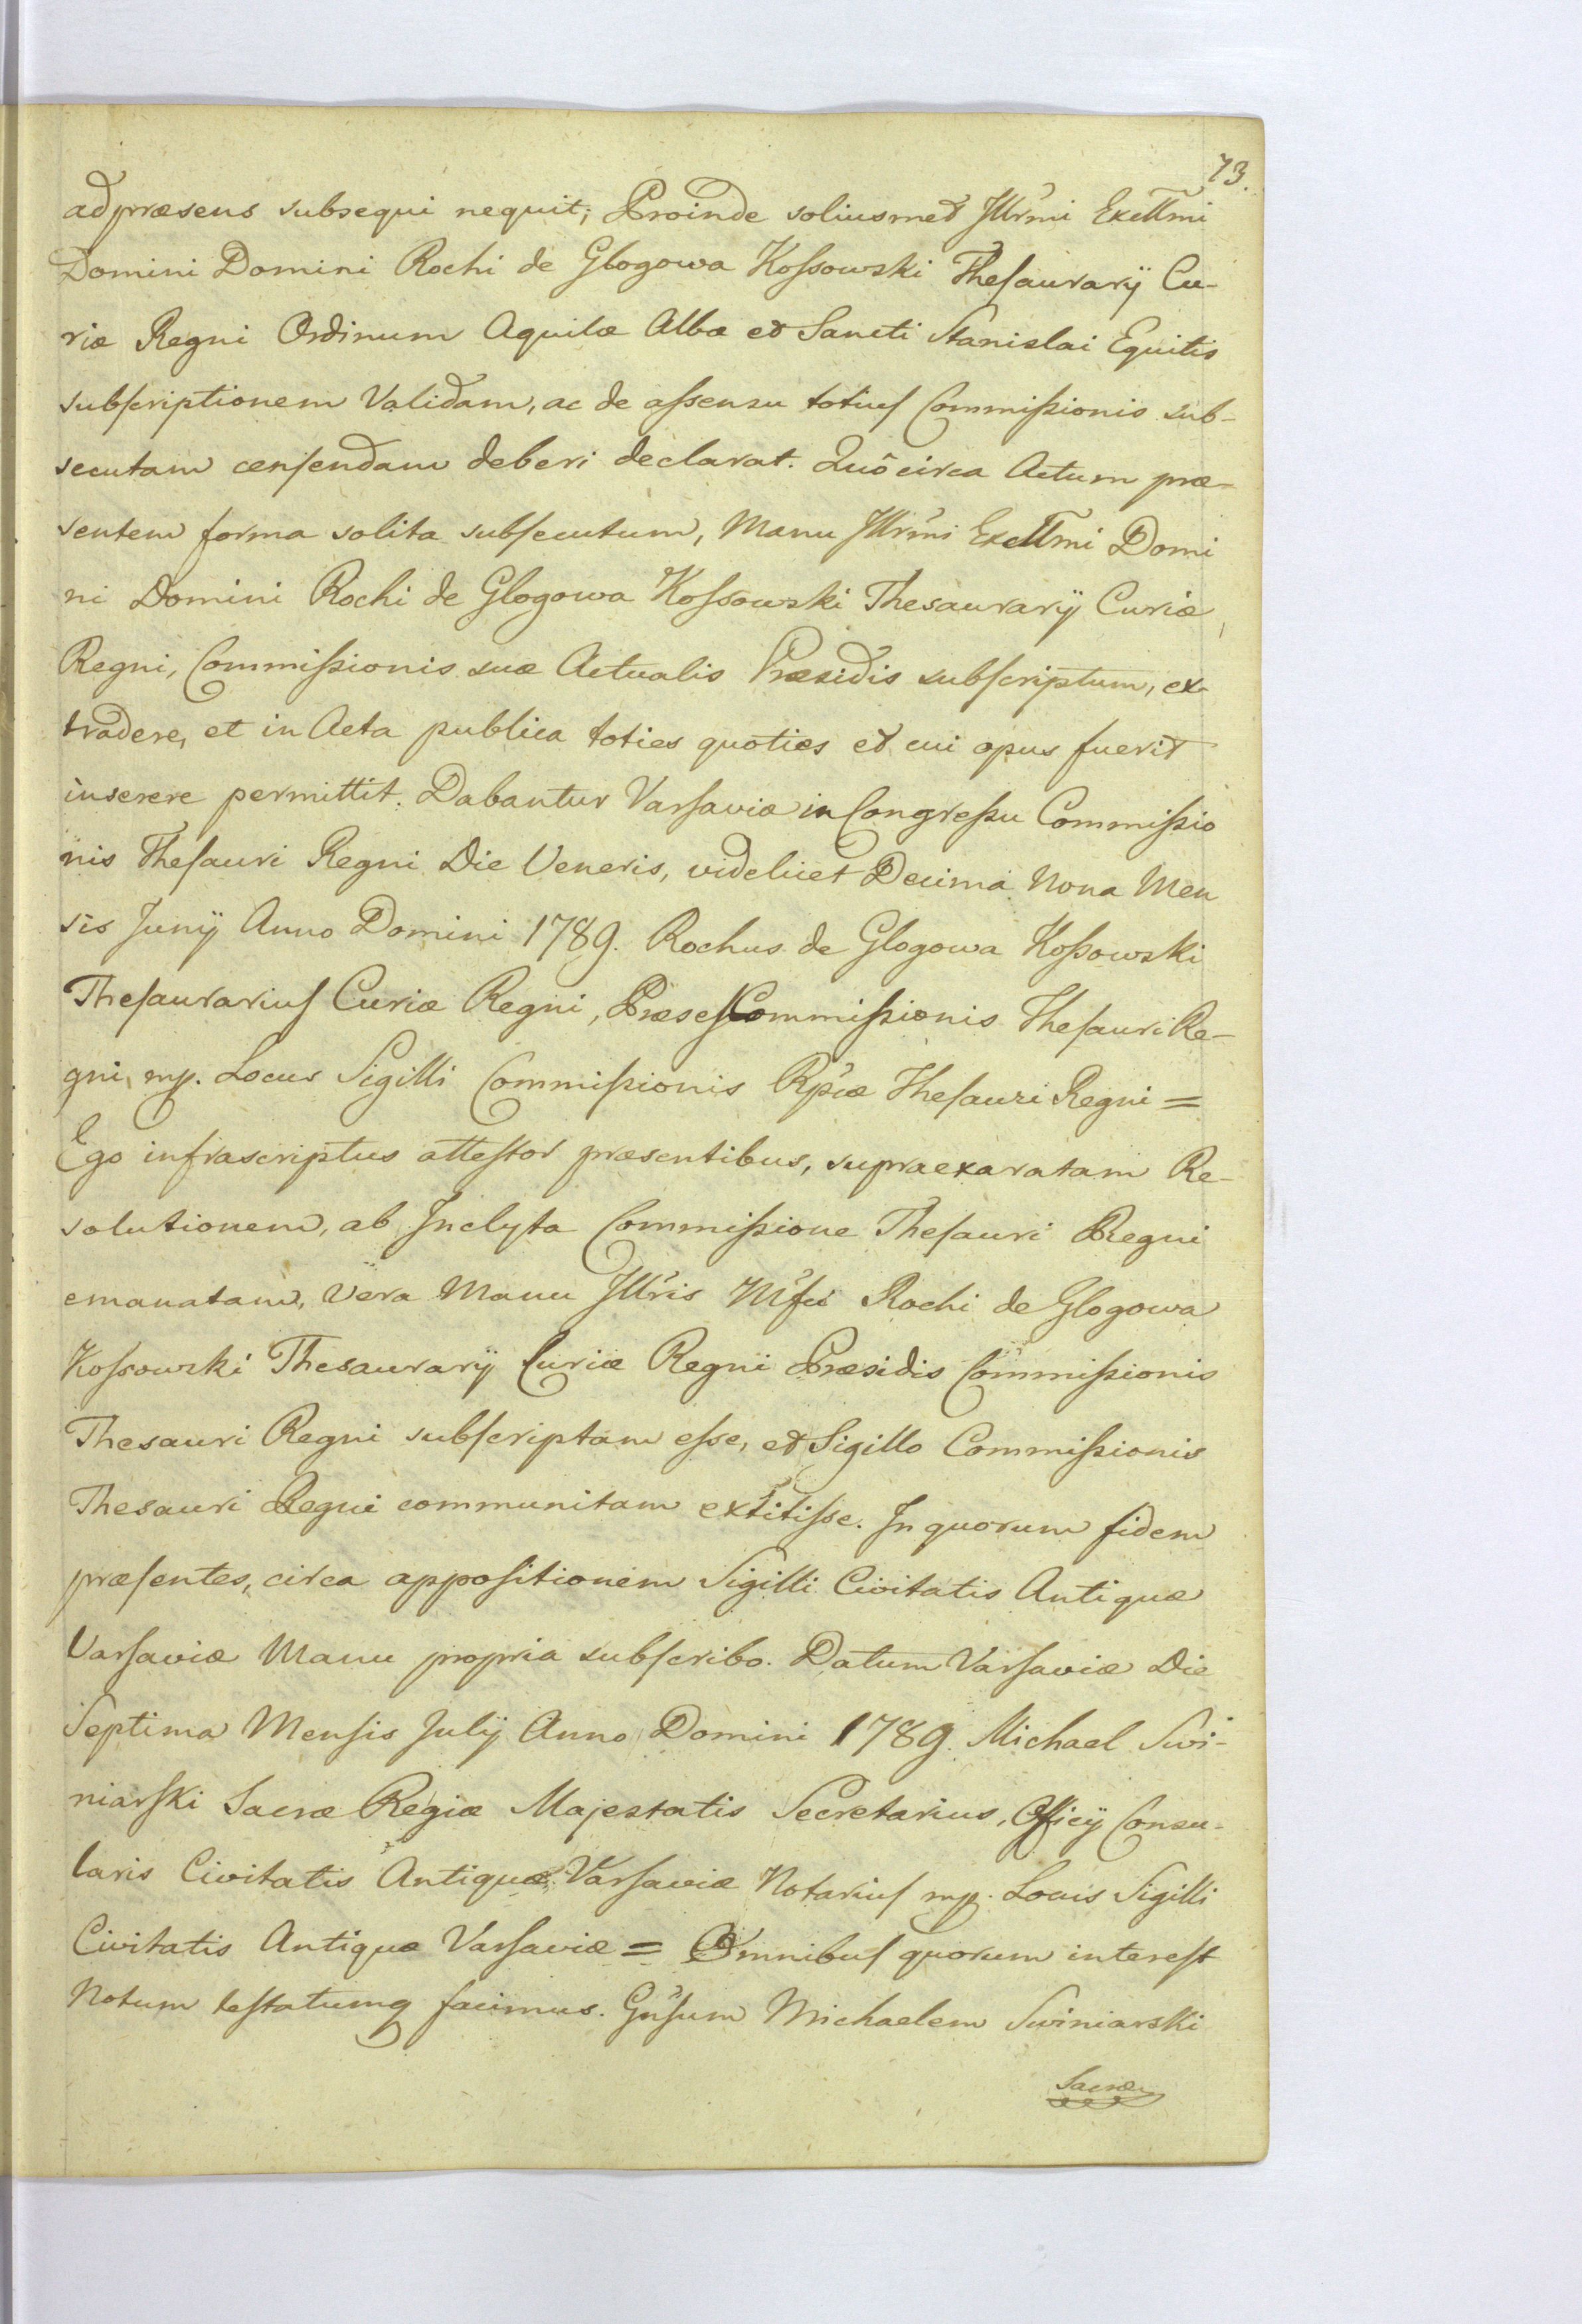 73.
ad præsens subsequi nequit; Proinde soliusmet Jllr̃mi Excllm̃i
Domini Domini Rochi de Glogowa Koſsowski Theſaurarij Cu-
riæ Regni Ordinum Aquilæ Albæ et Sancti Stanislai Equitis
subſcriptionem Validam, ac de aſsensu totiuſ Commiſsionis sub-
secutam cenſendam deberi declarat. Quôcirca Actum præ-
sentem forma solita subſecutum, Manu Jllr̃mi Excllm̃i Domi
ni Domini Rochi de Glogowa Koſsowski Thesaurarij Curiæ
Regni, Commiſsionis suæ Actualis Præsidis subſcriptum, ex-
tradere, et in Acta publica toties quoties et cui opus fuerit
inserere permittit. Dabantur Varſaviæ in Congreſsu Commiſsio
nis Theſauri Regni Die Veneris, videlicet Decima Nona Men
sis Junij Anno Domini 1789. Rochus de Glogowa Koſsowski
Theſaurariuſ Curiæ Regni, Præseſ Commiſsionis Theſauri Re-
gni, mp. Locus Sigilli Commiſsionis Rp̃cæ Theſauri Regni =
Ego infrascriptus atteſtor præsentibus, supraexaratam Re-
solutionem, ab Jnclyta Commiſsione Theſauri Regni
emanatam, Vera Manu Jllr̃is M̃fci Rochi de Glogowa
Koſsowski Thesaurarij Curiæ Regni Præsidis Commiſsionis
Thesauri Regni subſcriptam eſse, et Sigillo Commiſsionis
Thesauri Regni communitam extitiſse. Jn quorum fidem
præſentes, circa appoſitionem Sigilli Civitatis Antiquæ
Varſaviæ Manu propria subſcribo. Datum Varſaviæ Die
Septima Menſis Julij Anno Domini 1789. Michael Swi-
niarſki Sacræ Regiæ Majestatis Secretarius, Officij Consu-
laris Civitatis Antiquæ Varſaviæ Notariuſ mp. Locus Sigilli
Civitatis Antiquæ Varſaviæ = Omnibuſ quorum intereſt
Notum teſtatumq facimus. Gñſum Michaelem Swiniarski
Sacræ